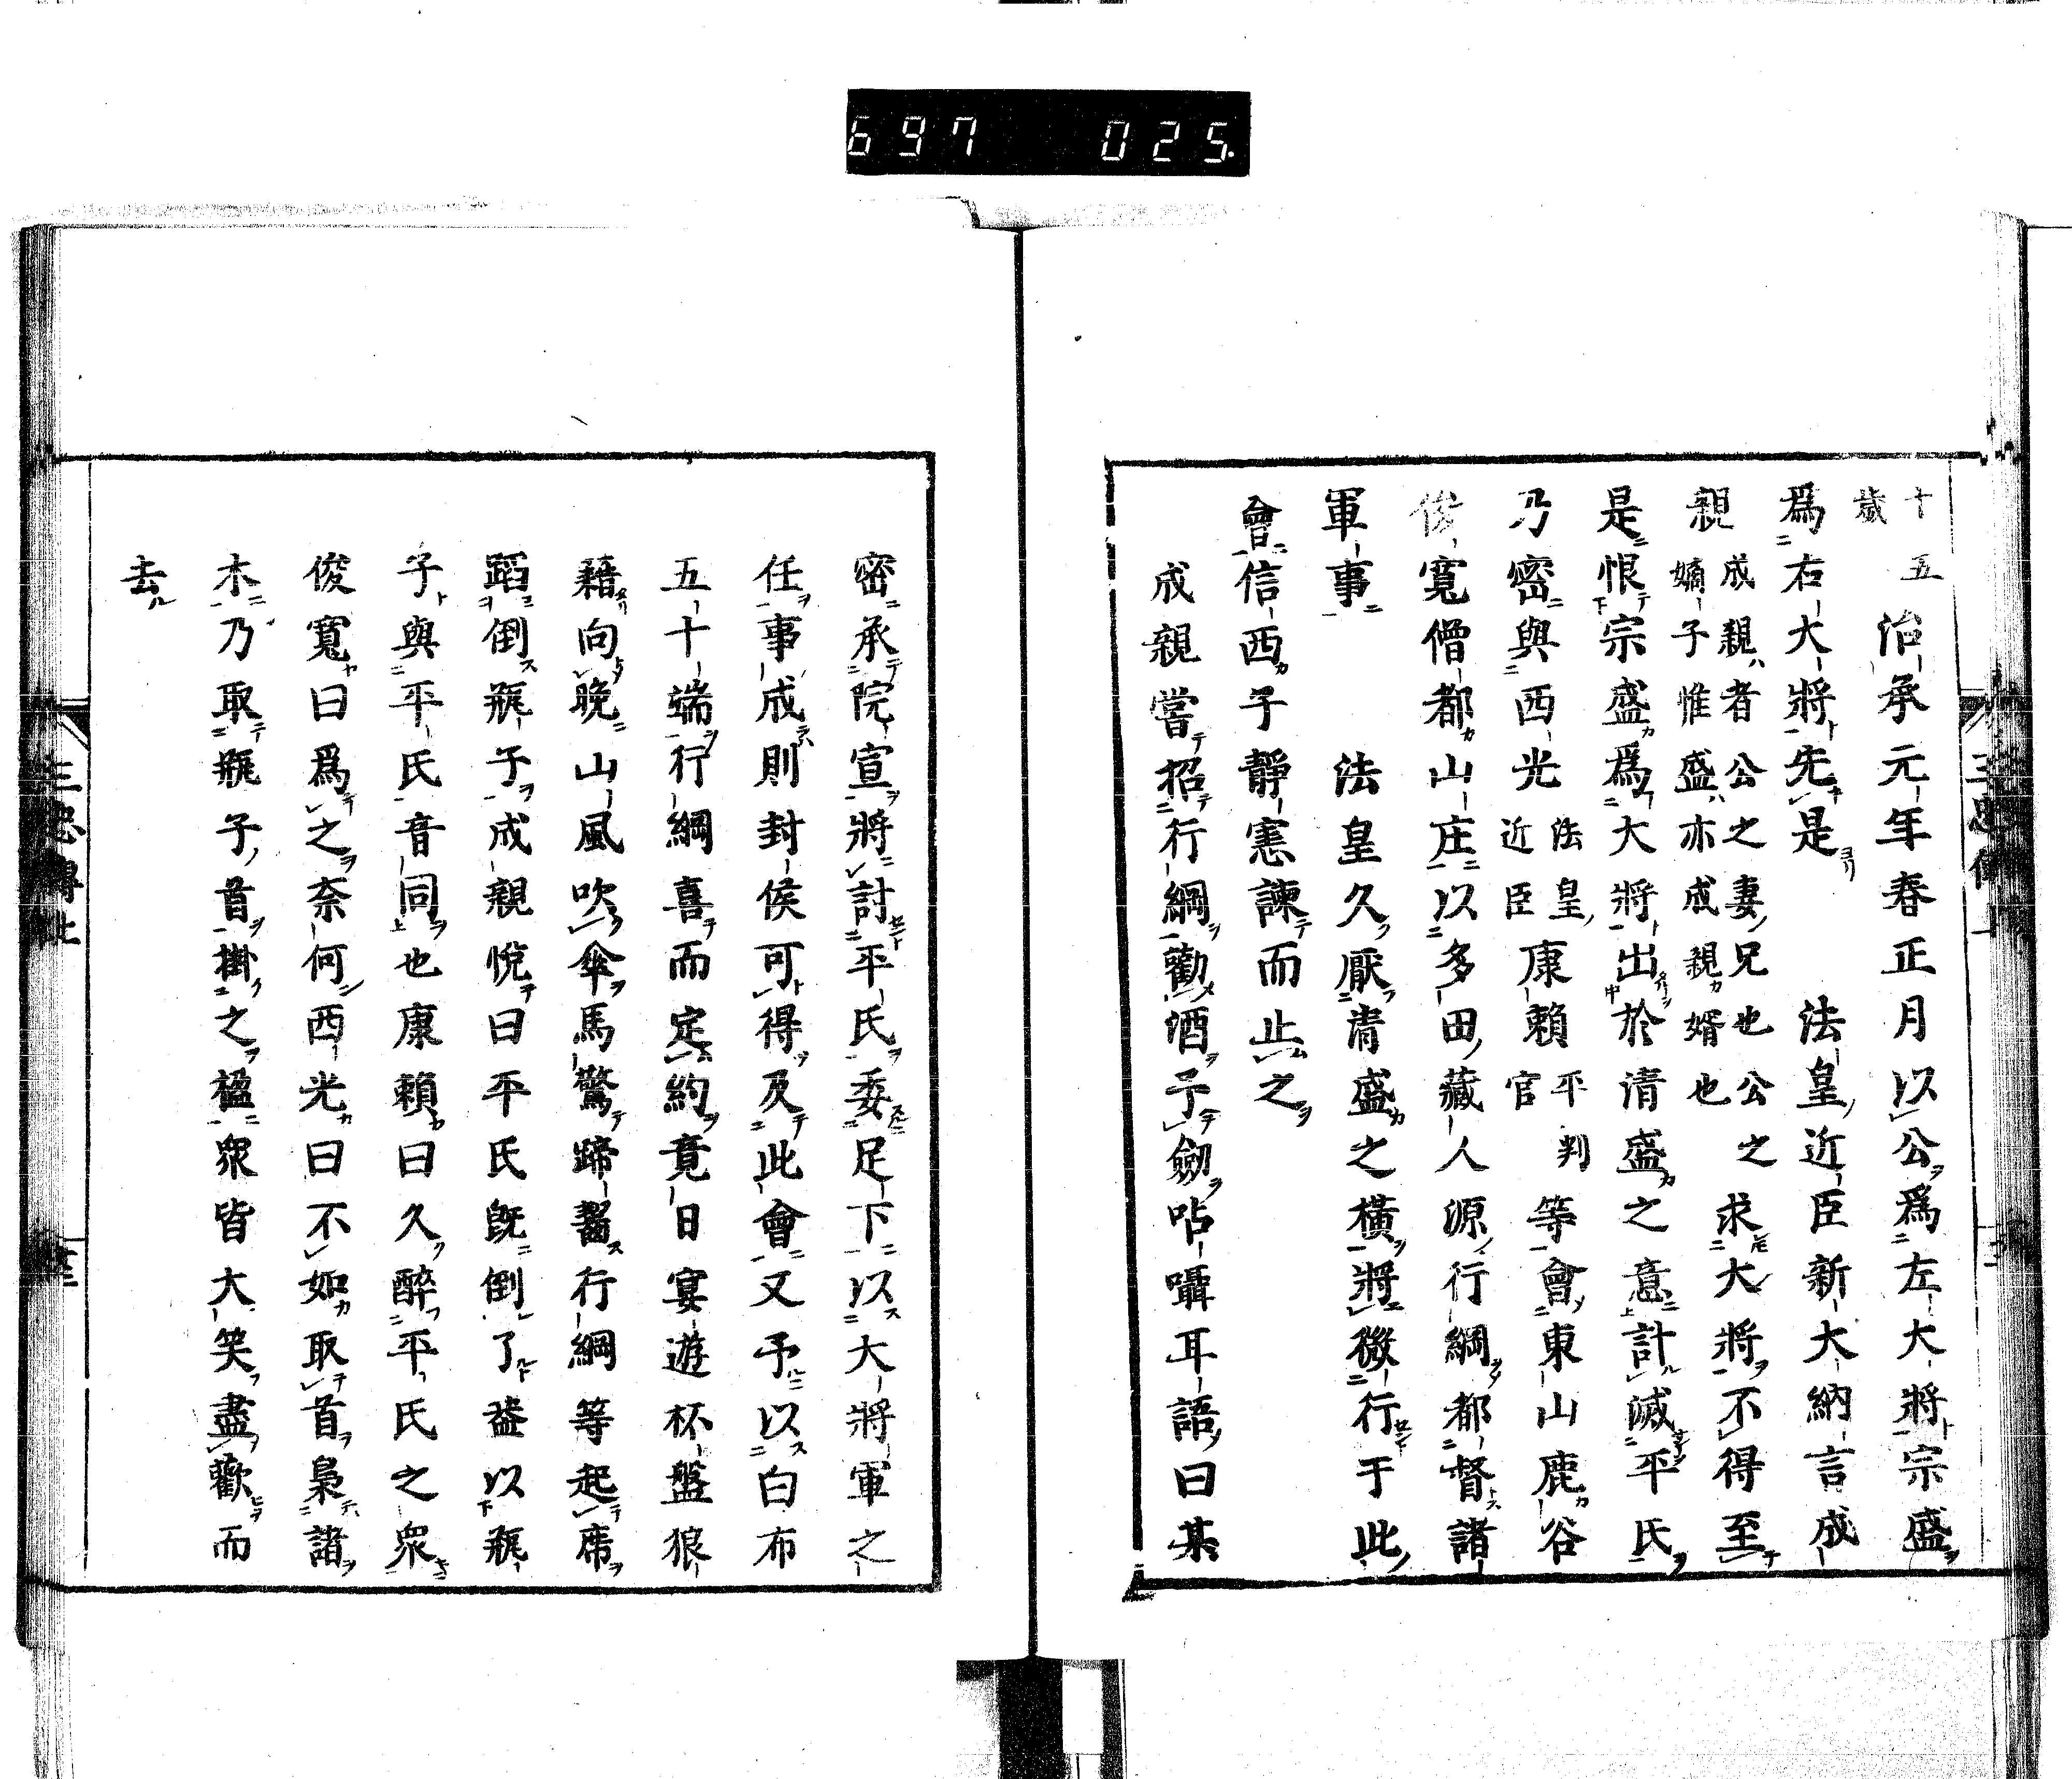 697 025
十五歳 治承元年春正月以公爲左大將宗盛
爲右大將先是 法皇近臣新大納言成
親 成親者公之妻兄也公之嫡子惟盛亦成親婿也 求大將不得至
是恨宗盛爲大將出於清盛之意計滅平氏
乃密與西光 法皇近臣 康賴 平判官 等會東山鹿谷
俊寬僧都山庄以多田藏人源行綱都督諸
軍事 法皇久厭淸盛之橫將微行于此
會信西子靜憲諫而止之
成親嘗招行綱勸酒予劒呫囁耳語曰某
密承院宣將討平氏委足下以大將軍之
任事成則封侯可得及此會又予以白布
五十端行綱喜而定約竟日宴遊杯盤狼
藉向晚山風吹傘馬驚蹄齧行綱等起席
蹈倒瓶子成親悅曰平氏旣倒了蓋以瓶
子與平氏音同也康賴曰久醉平氏之衆
俊寬曰爲之奈何西光曰不如取首梟諸
木乃取瓶子首掛之楹衆皆大笑盡歡而
去
三忠傳上